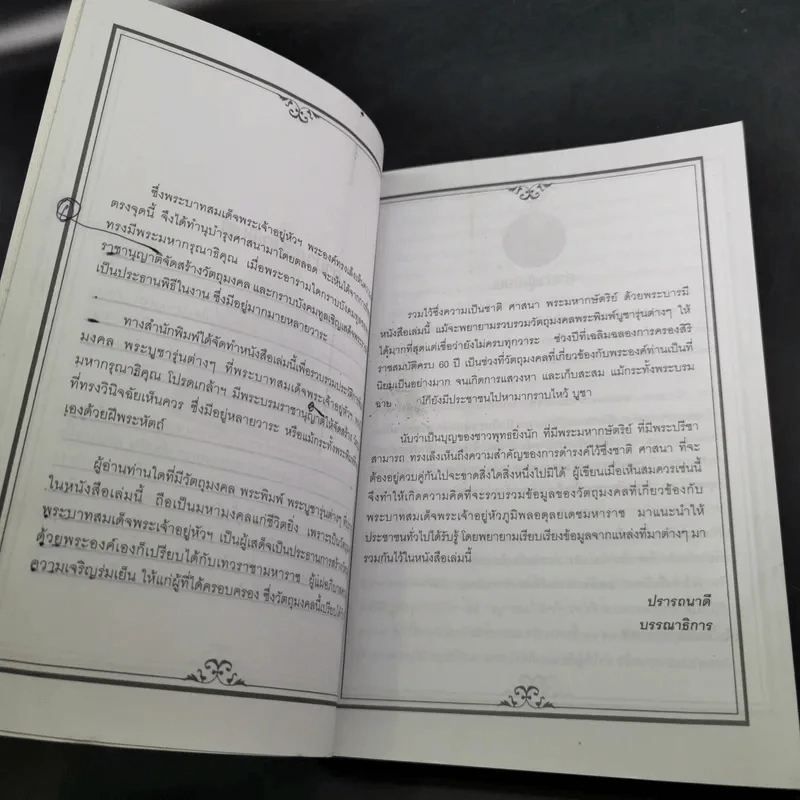 ซึ่งพระบาทสมเด็จพระเจ้าอยู่หัวฯ พระองค์ทรงเล็งเห็น
ตรงจุดนี้ จึงได้ทำนุบำรุงศาสนามาโดยตลอด จะเห็นได้จากการ
ทรงมีพระมหากรุณาธิคุณ เมื่อพระอารามใดกราบบังคม
ราชานุญาตจัดสร้างวัตถุมงคล และกราบบังคมทูลเชิญเสด็จ
เป็นประธานพิธีในงาน ซึ่งมีอยู่มากมายหลายวาระ
ทางสำนักพิมพ์ได้จัดทำหนังสือเล่มนี้เพื่อรวบรวมประวัติ
มงคล พระบูชารุ่นต่างๆ ที่พระบาทสมเด็จพระเจ้าอยู่หัว
มหากรุณาธิคุณ โปรดเกล้าฯ มีพระบรมราชานุญาตให้จัดสร้าง
ที่ทรงวินิจฉัยเห็นควร ซึ่งมีอยู่หลายวาระ หรือแม้กระทั่ง
เองด้วยฝีพระหัตถ์
ผู้อ่านท่านใดที่มีวัตถุมงคล พระพิมพ์ พระบูชารุ่นต่างๆ
ในหนังสือเล่มนี้ ถือเป็นมหามงคลแก่ชีวิตยิ่ง เพราะเป็น
พระบาทสมเด็จพระเจ้าอยู่หัวฯ เป็นผู้เสด็จเป็นประธานการสร้าง
ด้วยพระองค์เองก็เปรียบได้กับเทวราชามหาราช
ความเจริญร่มเย็น ให้แก่ผู้ที่ได้ครอบครอง ซึ่งวัตถุมงคลนี้
รวมไว้ซึ่งความเป็นชาติ ศาสนา พระมหากษัตริย์ ด้วยพระบารมี
หนังสือเล่มนี้ แม้จะพยายามรวบรวมวัตถุมงคลพระพิมพ์บูชารุ่นต่างๆ ให้
ได้มากที่สุดแต่เชื่อว่ายังไม่ครบทุกวาระ ช่วงปีที่เฉลิมฉลองการครองสิริ
ราชสมบัติครบ 60 ปี เป็นช่วงที่วัตถุมงคลที่เกี่ยวข้องกับพระองค์ท่านเป็นที่
นิยมเป็นอย่างมาก จนเกิดการแสวงหา และเก็บสะสม แม้กระทั่งพระบรม
ฉาย ก็ยังมีประชาชนไปหามากราบไหว้ บูชา
นับว่าเป็นบุญของชาวพุทธยิ่งนัก ที่มีพระมหากษัตริย์ ที่มีพระปรีชา
สามารถ ทรงเล็งเห็นถึงความสำคัญของการดำรงค์ไว้ซึ่งชาติ ศาสนา ที่จะ
ต้องอยู่ควบคู่กันไปจะขาดสิ่งใดสิ่งหนึ่งไปมิได้ ผู้เขียนเมื่อเห็นสมควรเช่นนี้
จึงทำให้เกิดความคิดที่จะรวบรวมข้อมูลของวัตถุมงคลที่เกี่ยวข้องกับ
พระบาทสมเด็จพระเจ้าอยู่หัวภูมิพลอดุลยเดชมหาราช มาแนะนำให้
ประชาชนทั่วไปได้รับรู้ โดยพยายามเรียบเรียงข้อมูลจากแหล่งที่มาต่างๆ มา
รวมกันไว้ในหนังสือเล่มนี้
ปรารถนาดี
บรรณาธิการ